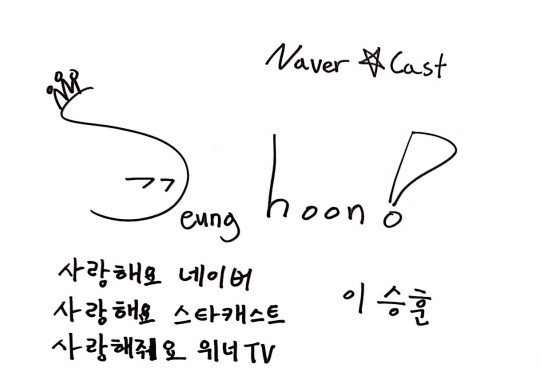 Naver ☆ Cast
Seung hoon!
사랑해요 네이버
사랑해요 스타캐스트
사랑해줘요 위너TV
이 승훈